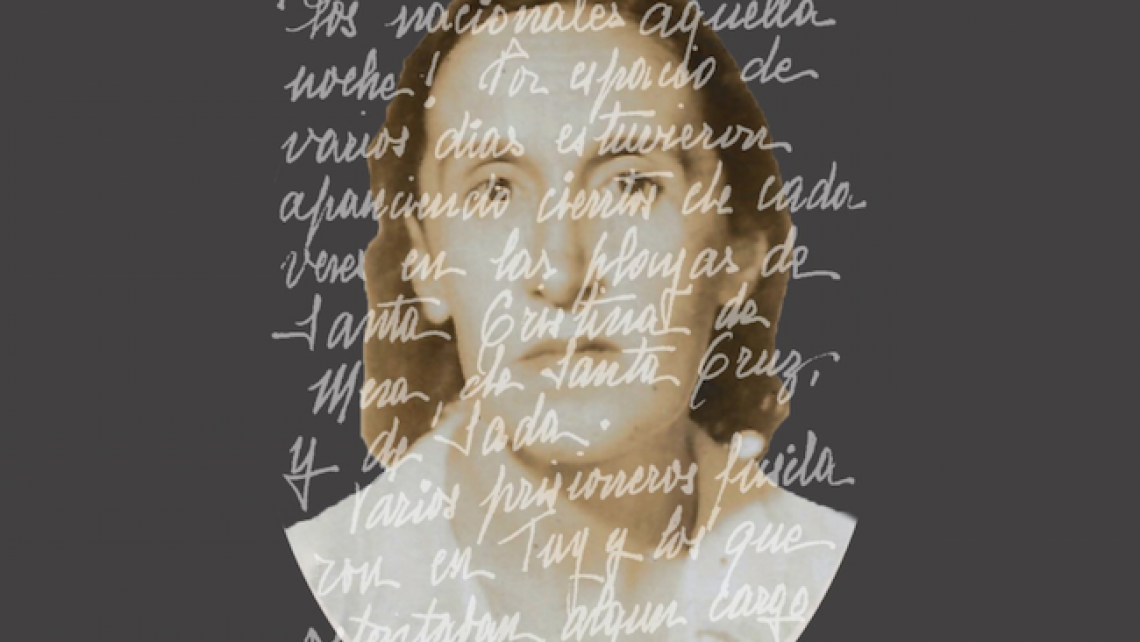 los nacionales aquella
noche! Por espacio de
varios dias estuvieron
apareciendo cientos de cada
veres en las playas de
Santa Cristina, de
Mera, de Santa Cruz,
y de Sada.
Varios prisioneros fusila
ron en Tuy y los que
ostentaban algun cargo